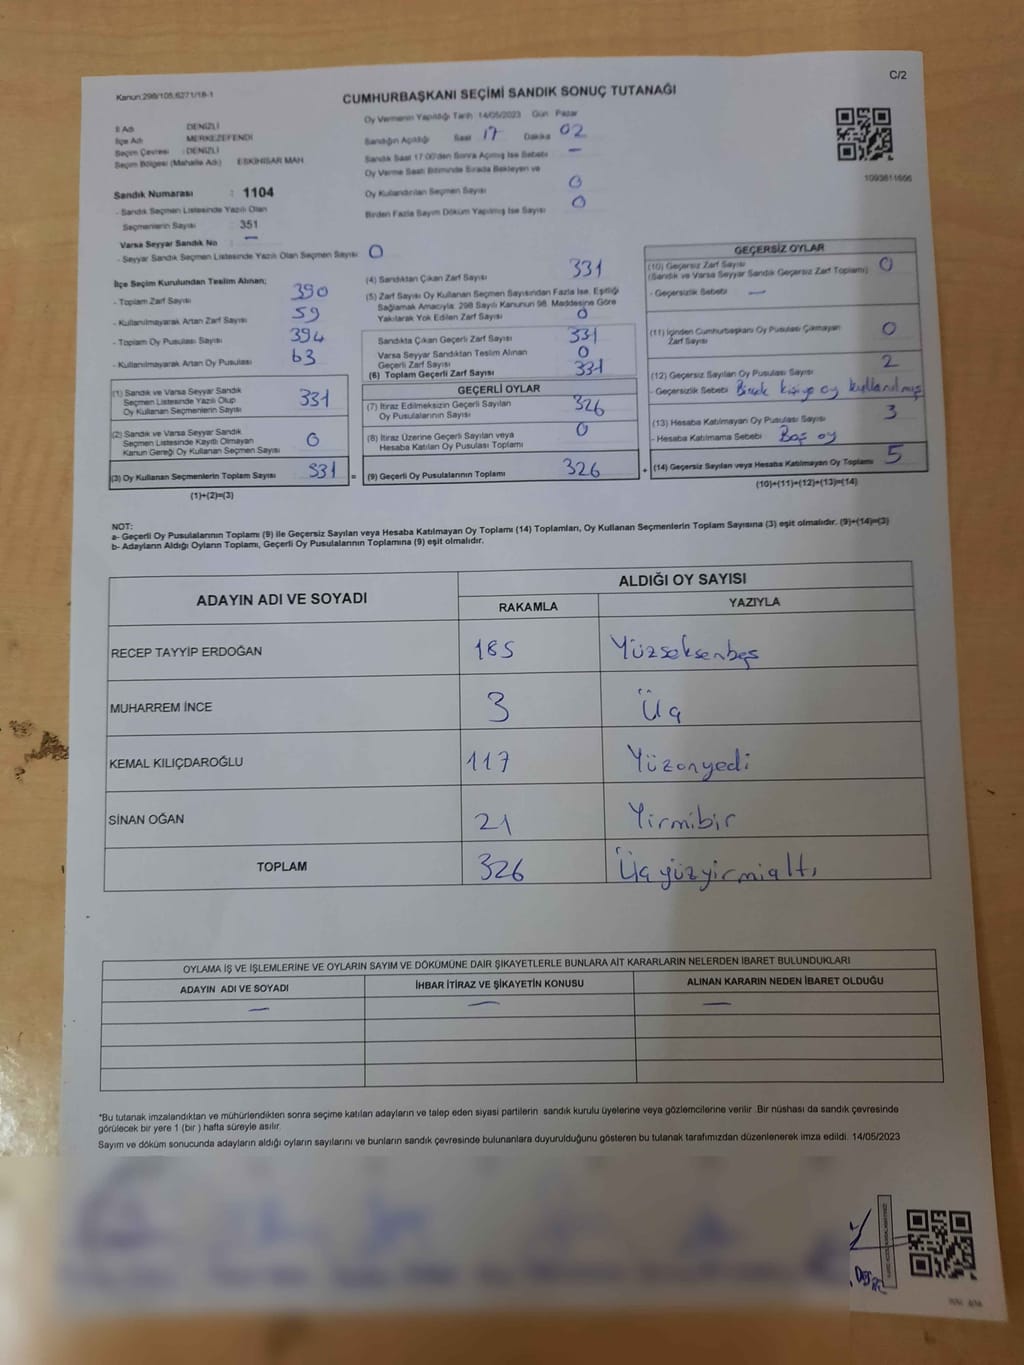 C/2
Kanun:298/105,6271/18-1
CUMHURBAŞKANI SEÇİMİ SANDIK SONUÇ TUTANAĞI
İl Adı DENİZLİ
İlçe Adı MERKEZEFENDİ
Seçim Çevresi : DENİZLİ
Seçim Bölgesi (Mahalle Adı) ESKİHİSAR MAH.
Sandık Numarası : 1104
- Sandık Seçmen Listesinde Yazılı Olan
Seçmenlerin Sayısı 351
Varsa Seyyar Sandık No : —
- Seyyar Sandık Seçmen Listesinde Yazılı Olan Seçmen Sayısı 0
Oy Vermenin Yapıldığı Tarih 14/05/2023 Gün Pazar
Sandığın Açıldığı Saat 17 Dakika 02
Sandık Saat 17:00'den Sonra Açılmış İse Sebebi —
Oy Verme Saati Bitiminde Sırada Bekleyen ve
Oy Kullandırılan Seçmen Sayısı 0
Birden Fazla Sayım Döküm Yapılmış İse Sayısı 0
1093811606
İlçe Seçim Kurulundan Teslim Alınan;
- Toplam Zarf Sayısı 390
- Kullanılmayarak Artan Zarf Sayısı 59
- Toplam Oy Pusulası Sayısı 394
- Kullanılmayarak Artan Oy Pusulası 63
(1) Sandık ve Varsa Seyyar Sandık
Seçmen Listesinde Yazılı Olup
Oy Kullanan Seçmenlerin Sayısı 331
(2) Sandık ve Varsa Seyyar Sandık
Seçmen Listesinde Kayıtlı Olmayan
Kanun Gereği Oy Kullanan Seçmen Sayısı 0
(3) Oy Kullanan Seçmenlerin Toplam Sayısı 331 =
(1)+(2)=(3)
(4) Sandıktan Çıkan Zarf Sayısı 331
(5) Zarf Sayısı Oy Kullanan Seçmen Sayısından Fazla İse, Eşitliği
Sağlamak Amacıyla; 298 Sayılı Kanunun 98. Maddesine Göre
Yakılarak Yok Edilen Zarf Sayısı 0
Sandıkta Çıkan Geçerli Zarf Sayısı 331
Varsa Seyyar Sandıktan Teslim Alınan
Geçerli Zarf Sayısı 0
(6) Toplam Geçerli Zarf Sayısı 331
GEÇERLİ OYLAR
(7) İtiraz Edilmeksizin Geçerli Sayılan
Oy Pusulalarının Sayısı 326
(8) İtiraz Üzerine Geçerli Sayılan veya
Hesaba Katılan Oy Pusulası Toplamı 0
(9) Geçerli Oy Pusulalarının Toplamı 326 +
GEÇERSİZ OYLAR
(10) Geçersiz Zarf Sayısı
(Sandık ve Varsa Seyyar Sandık Geçersiz Zarf Toplamı) 0
- Geçersizlik Sebebi —
(11) İçinden Cumhurbaşkanı Oy Pusulası Çıkmayan
Zarf Sayısı 0
(12) Geçersiz Sayılan Oy Pusulası Sayısı 2
- Geçersizlik Sebebi kişiye oy kullanılmış
(13) Hesaba Katılmayan Oy Pusulası Sayısı 3
- Hesaba Katılmama Sebebi Boş oy
(14) Geçersiz Sayılan veya Hesaba Katılmayan Oy Toplamı 5
(10)+(11)+(12)+(13)=(14)
NOT:
a- Geçerli Oy Pusulalarının Toplamı (9) ile Geçersiz Sayılan veya Hesaba Katılmayan Oy Toplamı (14) Toplamları, Oy Kullanan Seçmenlerin Toplam Sayısına (3) eşit olmalıdır. (9)+(14)=(3)
b- Adayların Aldığı Oyların Toplamı, Geçerli Oy Pusulalarının Toplamına (9) eşit olmalıdır.
ADAYIN ADI VE SOYADI ALDIĞI OY SAYISI
RAKAMLA YAZIYLA
RECEP TAYYİP ERDOĞAN 185 Yüzseksenbeş
MUHARREM İNCE 3 Üç
KEMAL KILIÇDAROĞLU 117 Yüzonyedi
SİNAN OĞAN 21 Yirmibir
TOPLAM 326 Üçyüzyirmialtı
OYLAMA İŞ VE İŞLEMLERİNE VE OYLARIN SAYIM VE DÖKÜMÜNE DAİR ŞİKAYETLERLE BUNLARA AİT KARARLARIN NELERDEN İBARET BULUNDUKLARI
ADAYIN ADI VE SOYADI İHBAR İTİRAZ VE ŞİKAYETİN KONUSU ALINAN KARARIN NEDEN İBARET OLDUĞU
— — —
*Bu tutanak imzalandıktan ve mühürlendikten sonra seçime katılan adayların ve talep eden siyasi partilerin sandık kurulu üyelerine veya gözlemcilerine verilir. Bir nüshası da sandık çevresinde
görülecek bir yere 1 (bir ) hafta süreyle asılır.
Sayım ve döküm sonucunda adayların aldığı oyların sayılarını ve bunların sandık çevresinde bulunanlara duyurulduğunu gösteren bu tutanak tarafımızdan düzenlenerek imza edildi. 14/05/2023